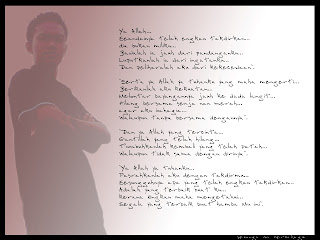 Ya Allah...
Seandainya telah engkau takdirkan...
dia bukan milikku...
Bawalah ia jauh dari pandanganku...
Luputkanlah ia dari ingatanku...
Dan peliharalah aku dari kekecewaan'.
'Serta ya Allah ya tuhanku yang maha mengerti...
Berikanlah aku kekuatan...
Melontar bayangannya jauh ke dada langit...
Hilang bersama senja nan merah...
agar aku bahagia...
Walaupun tanpa bersama dengannya'.
'Dan ya Allah yang tercinta...
Gantilah yang telah hilang...
Tumbuhkanlah kembali yang telah patah...
Walaupun tidak sama dengan dirinya'.
'Ya Allah ya tuhanku...
Pasrahkanlah aku dengan takdirmu...
Sesungguhnya apa yang telah engkau takdirkan...
Adalah yang terbaik buat ku...
Kerana engkau maha mengetahui...
Segala yang terbaik buat hamba Mu ini'.